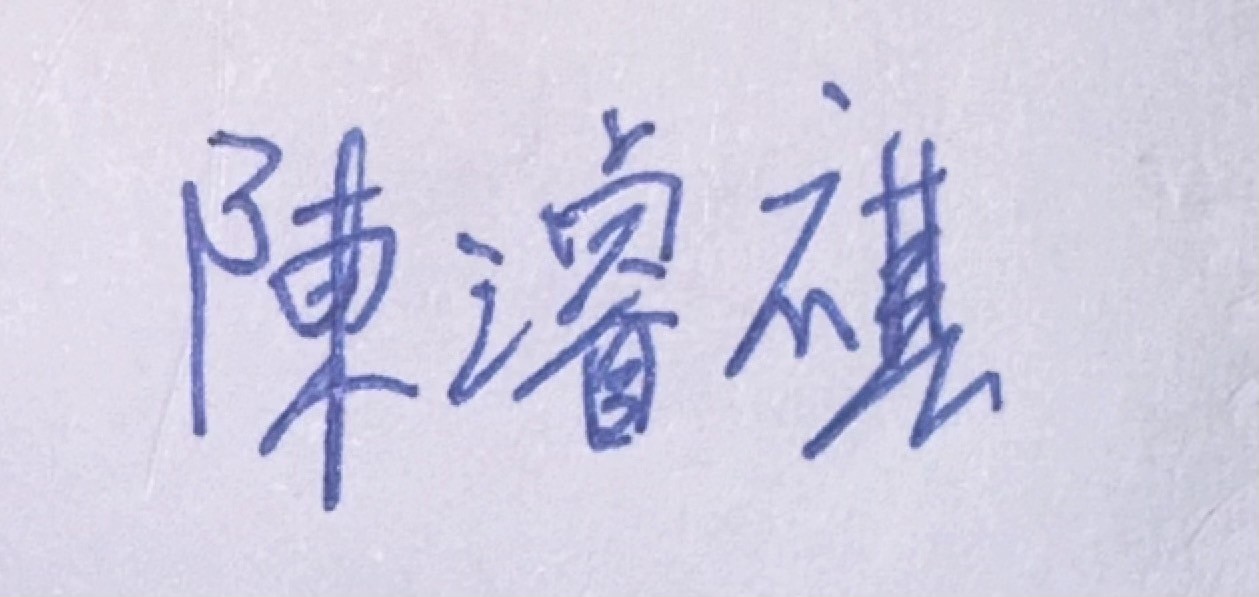 陳濬祺